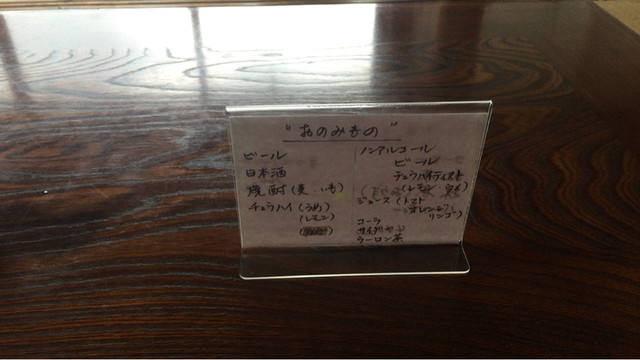 "おのみもの"
ビール
日本酒
焼酎(麦・いも)
チュウハイ(うめ)
(レモン)
ノンアルコール
ビール
チュウハイテイスト
(レモン
ジュース(トマト
オレンジ
リンゴ)
コーラ
サイダー
ウーロン茶